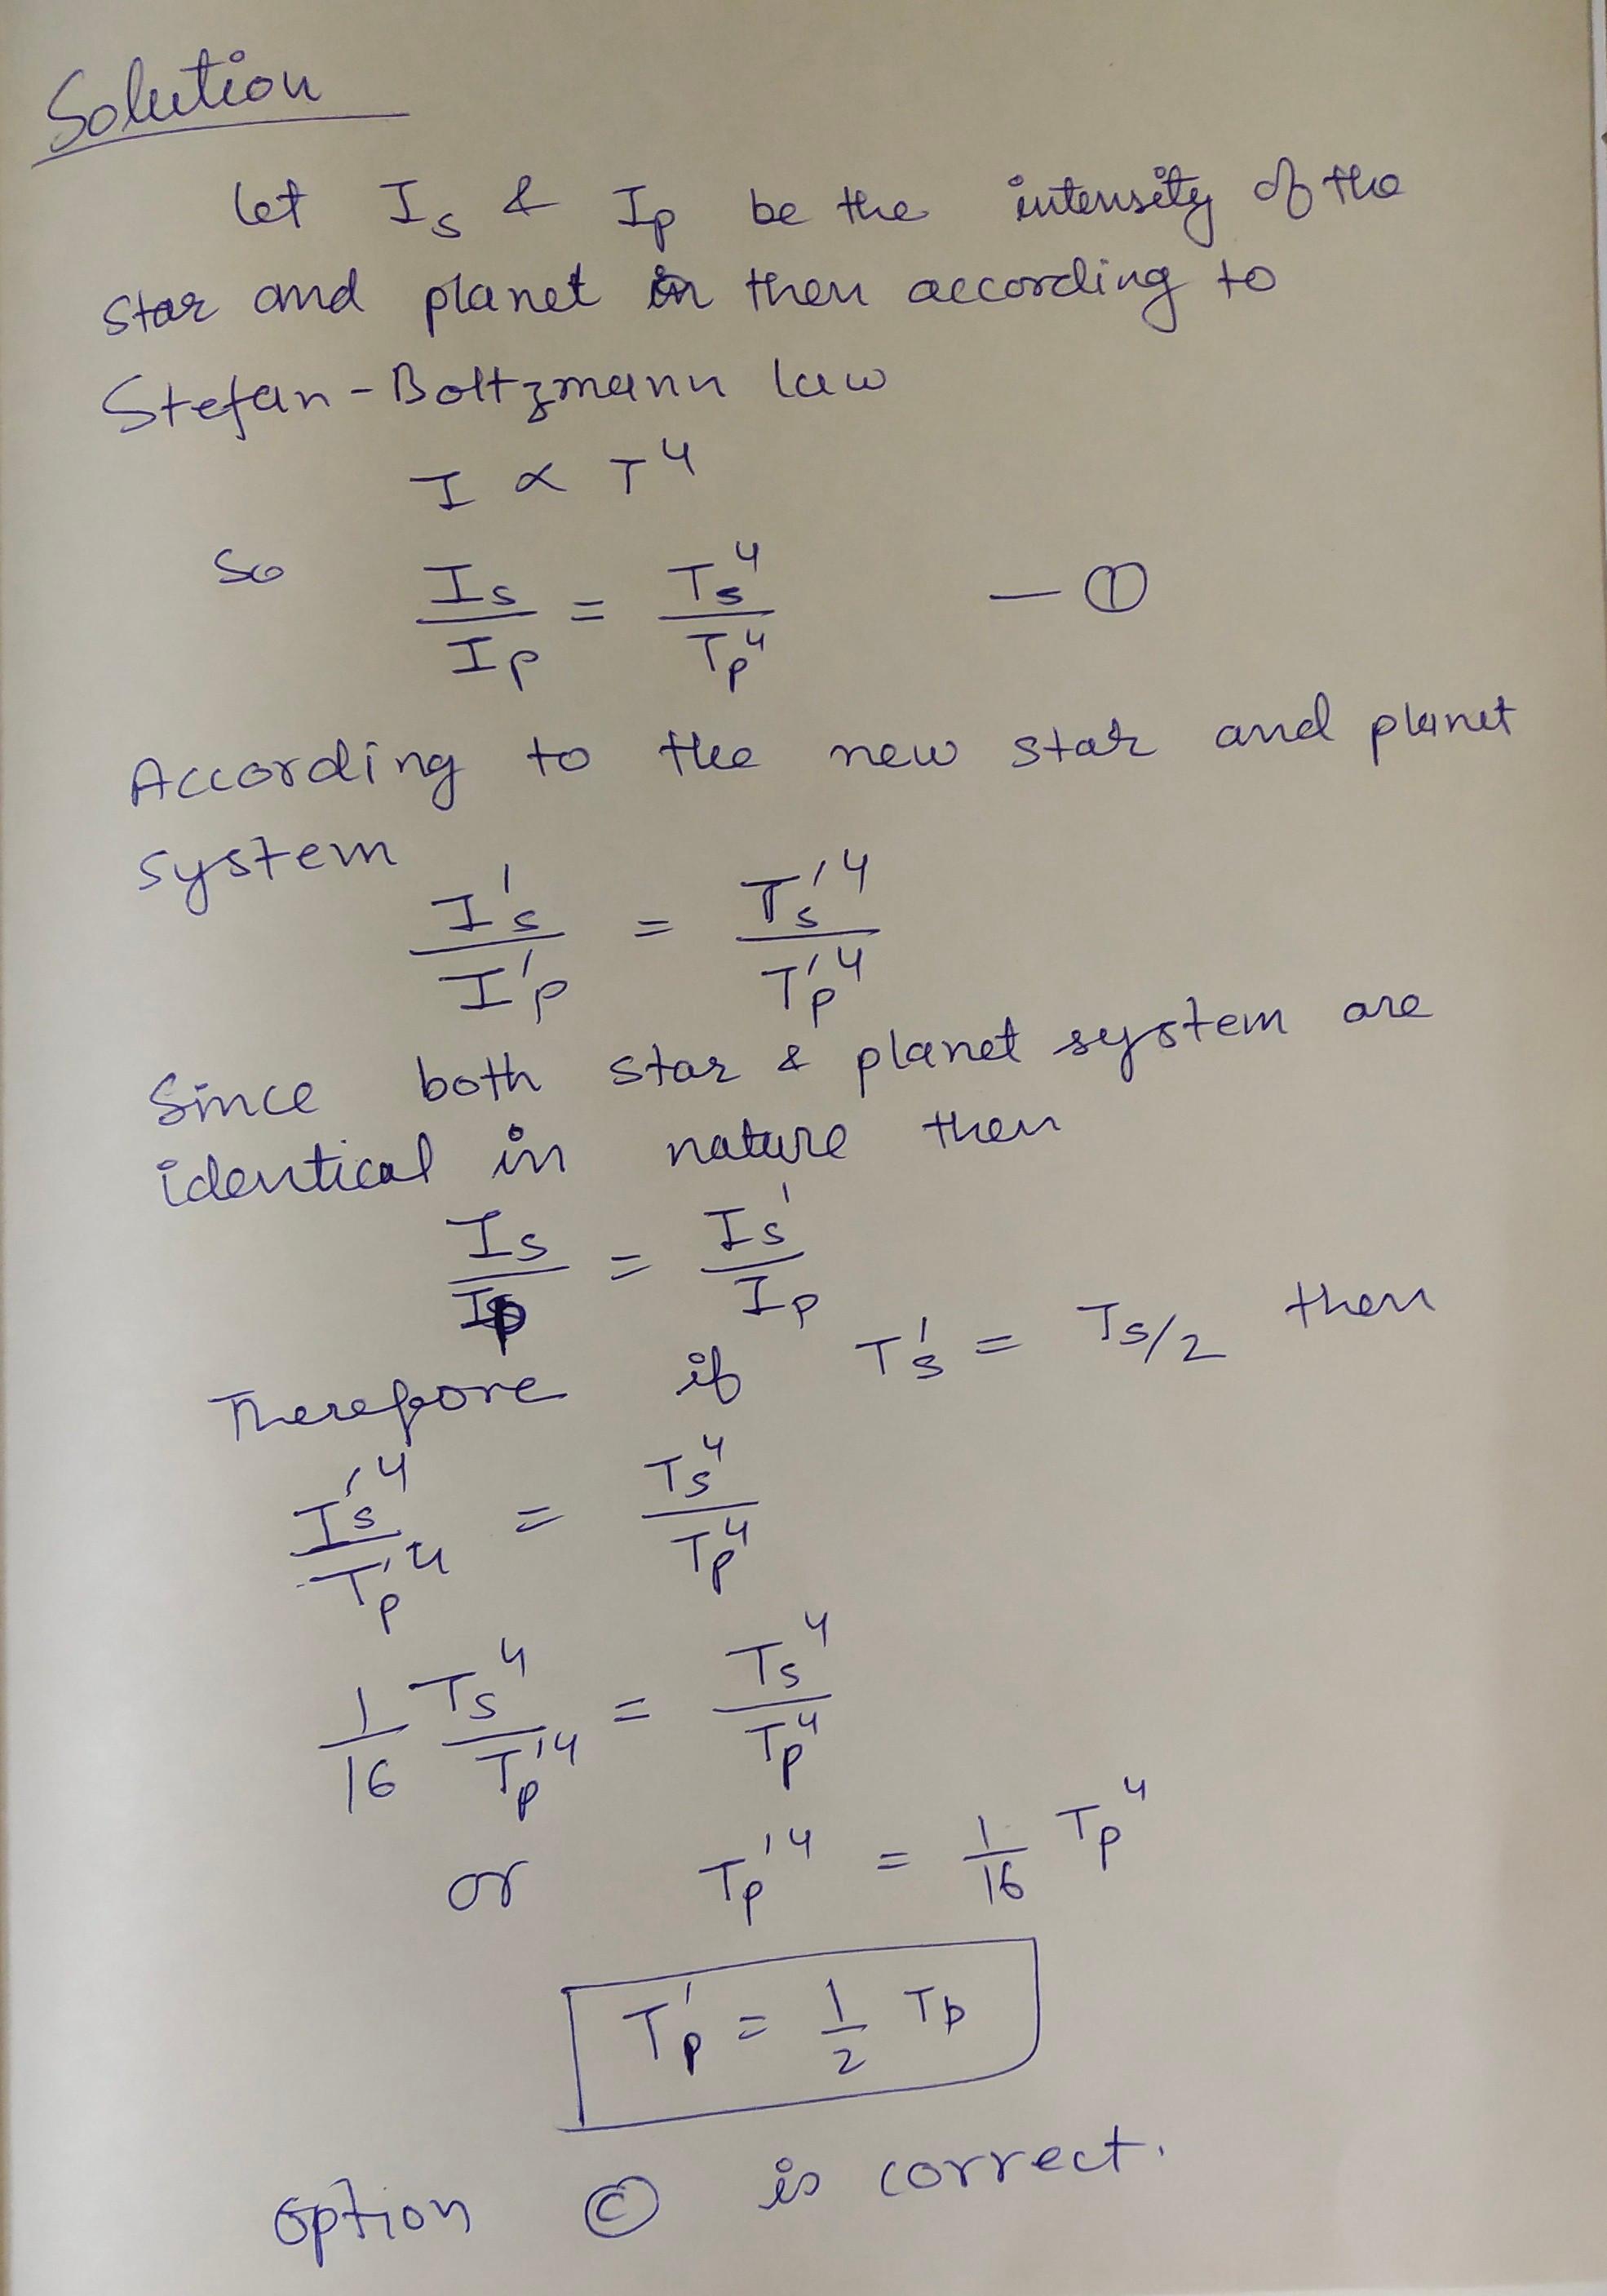 Solution
Let Is & Ip be the intensity of the
star and planet in then according to
Stefan-Boltzmann law
I ∝ T⁴
So Is/Ip = Ts⁴/Tp⁴ — ①
According to the new star and planet
system
I's/I'p = Ts'⁴/Tp'⁴
Since both star & planet system are
identical in nature then
Is/Ip = Is'/Ip
Therefore if T's = Ts/2 then
Is'⁴/Tp'⁴ = Ts⁴/Tp⁴
1/16 Ts⁴/Tp'⁴ = Ts⁴/Tp⁴
or Tp'⁴ = 1/16 Tp⁴
Tp' = 1/2 Tp
Option Ⓒ is correct.